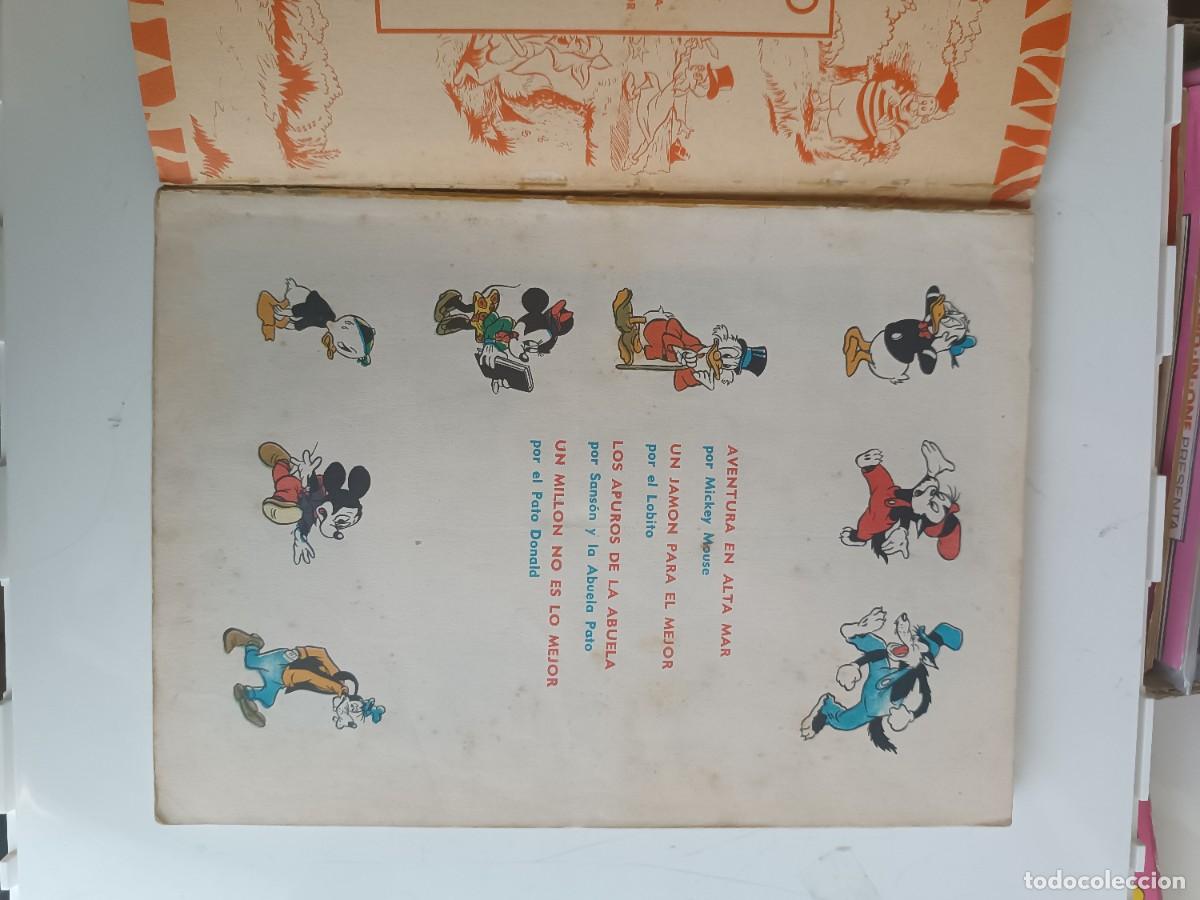 AVENTURA EN ALTA MAR
por Mickey Mouse
UN JAMON PARA EL MEJOR
por el Lobito
LOS APUROS DE LA ABUELA
por Sansón y la Abuela Pato
UN MILLON NO ES LO MEJOR
por el Pato Donald
PRESENTA
todocoleccion